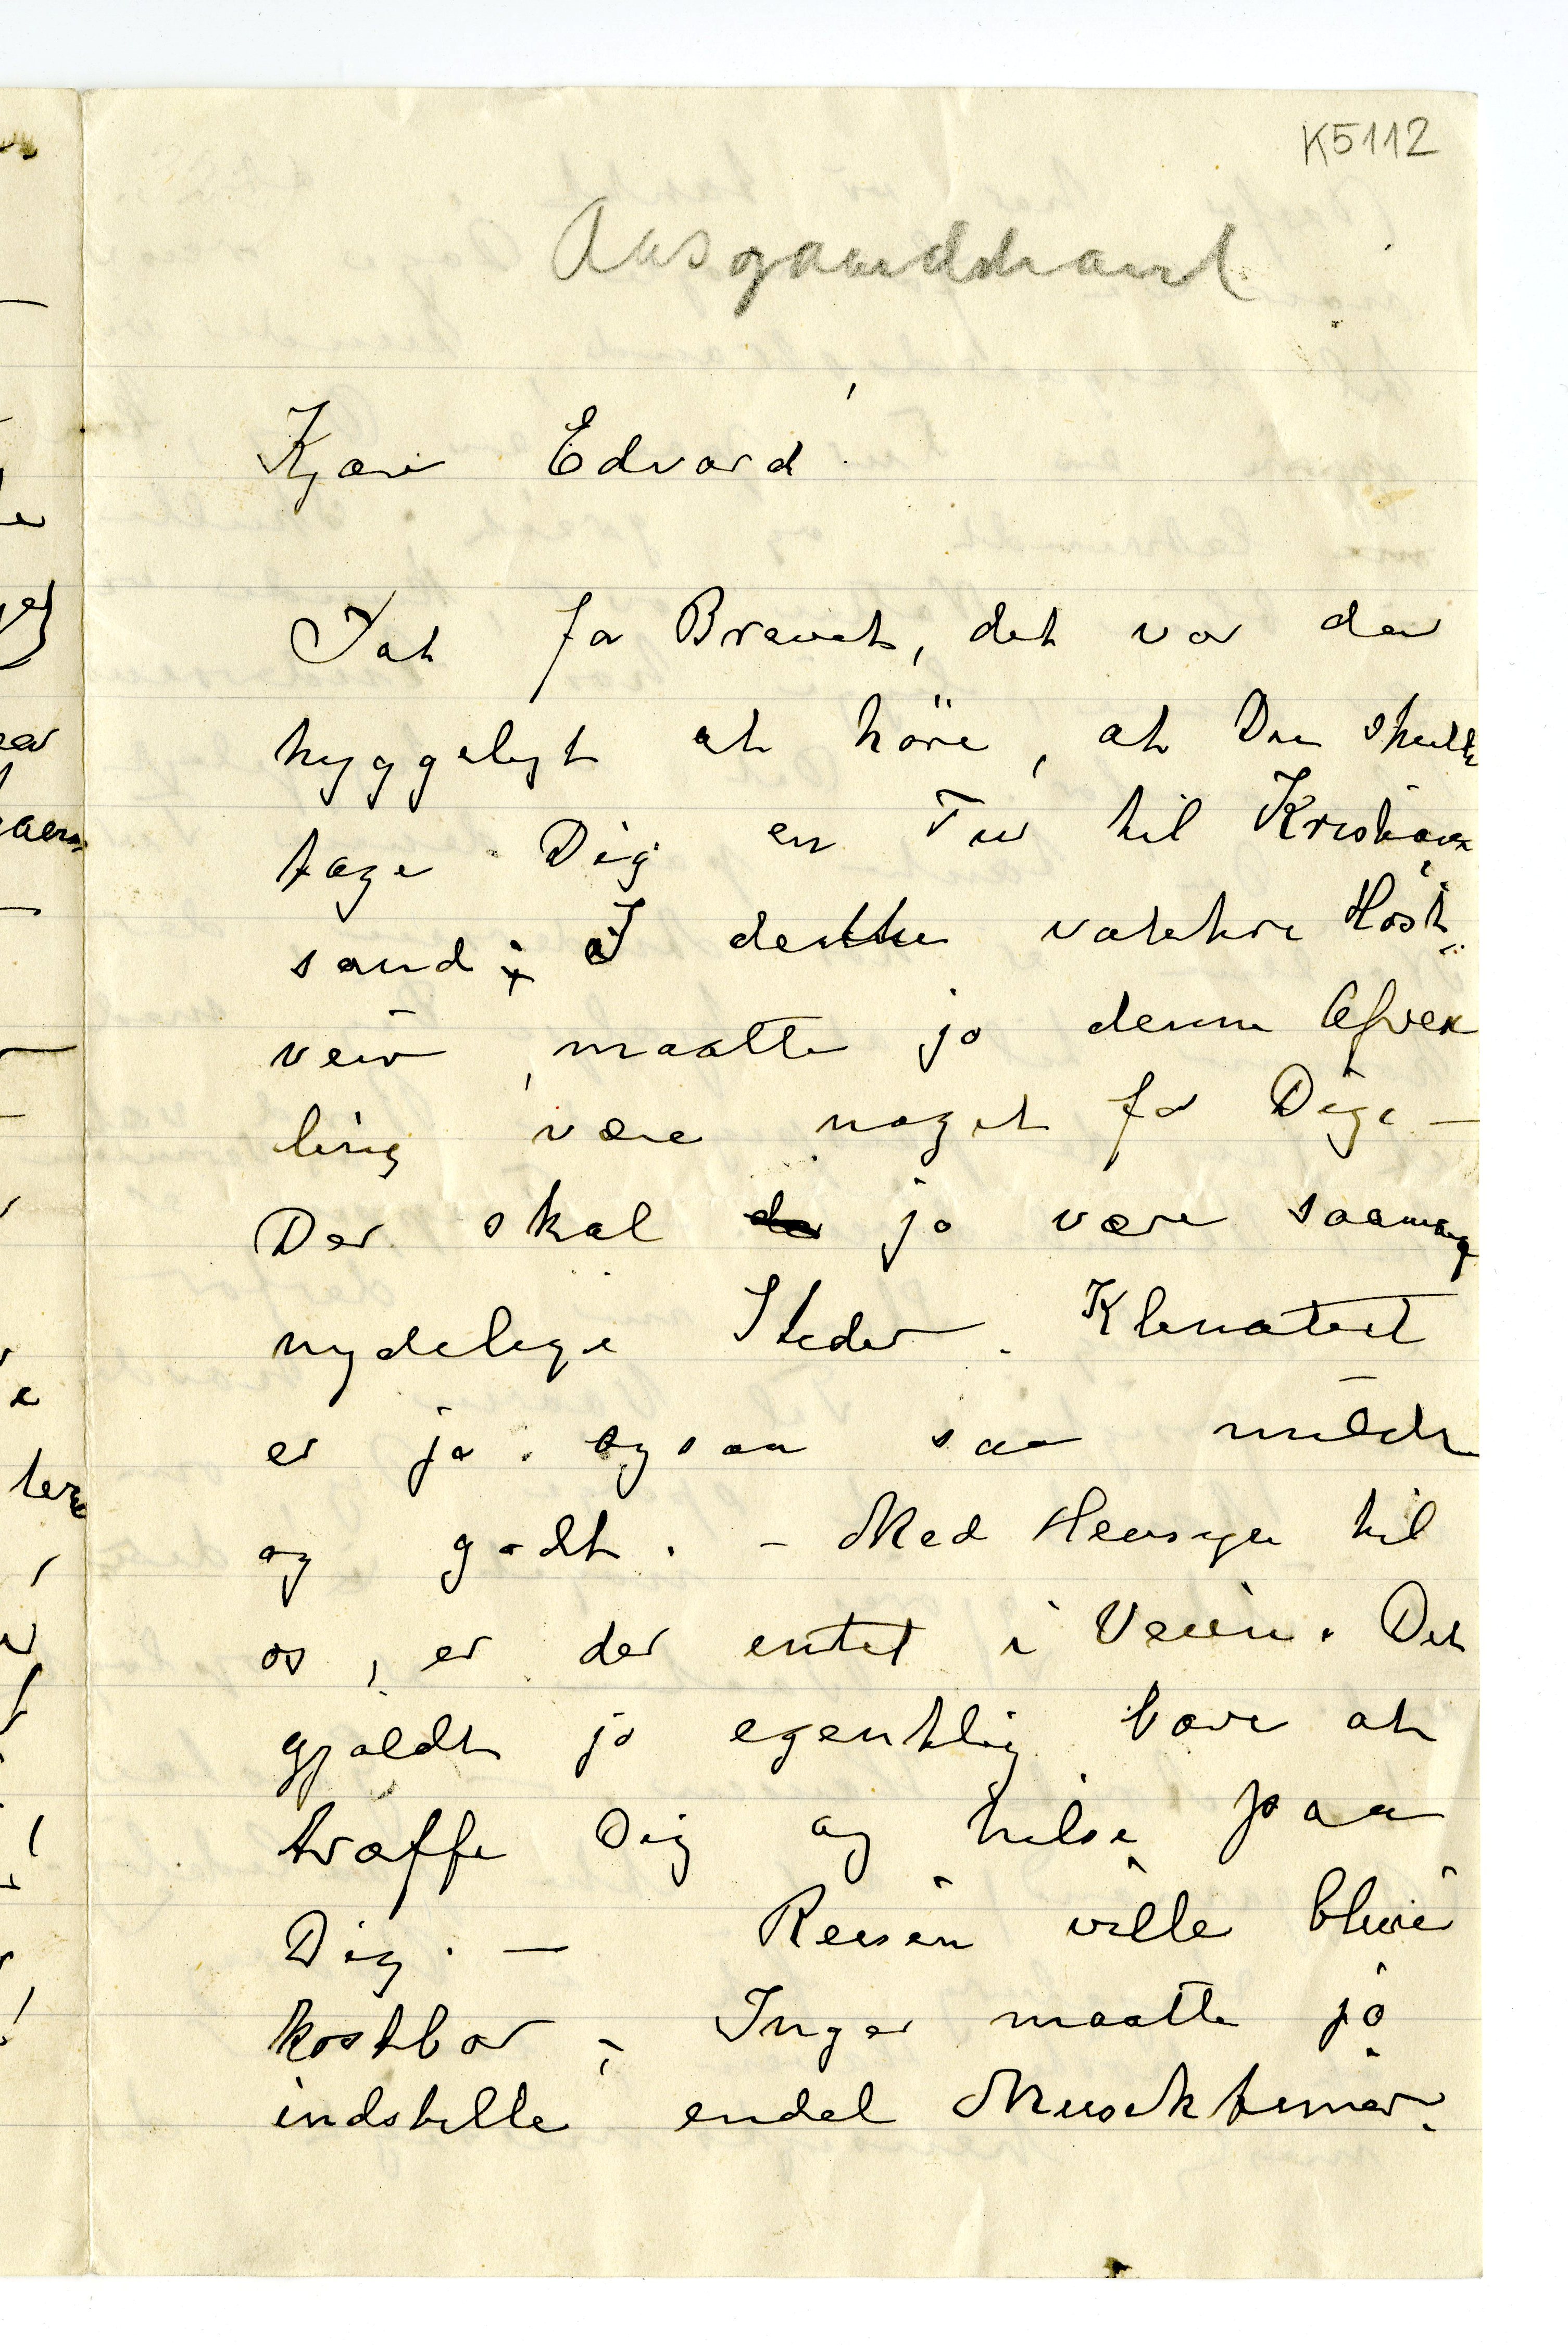 K5112
Aasgaardstrand
Kjære Edvard!
Tak for Brevet, det var da
hyggeligt at høre, at Du skulle
tage Dig en Tur til Kristian
sand; I dette vakkre Høst
veir, maatte jo denne Afvex
ling være noget for Dig. —
Der skal jo være saamange
nydelige Steder. Klimatet
er jo ogsaa saa mildt
og godt. – Med Hensyn til
os, er der intet i Veien. Det
gjældt jo egentlig bare at
træffe Dig og hilse paa
Dig. — Reisen ville blive
kostbar; Inger maatte jo
indstille endel Musiktimer.